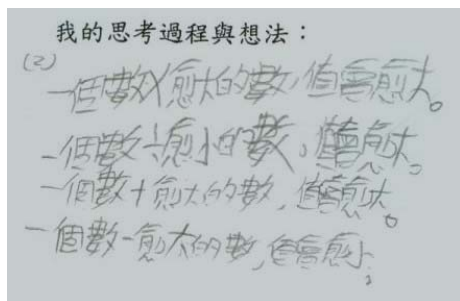 我的思考過程與想法：
(2)
一個數×愈大的數，值會愈大。
一個數÷愈小的數，值會愈大。
一個數+愈大的數，值會愈大。
一個數-愈大的數，值會愈小。